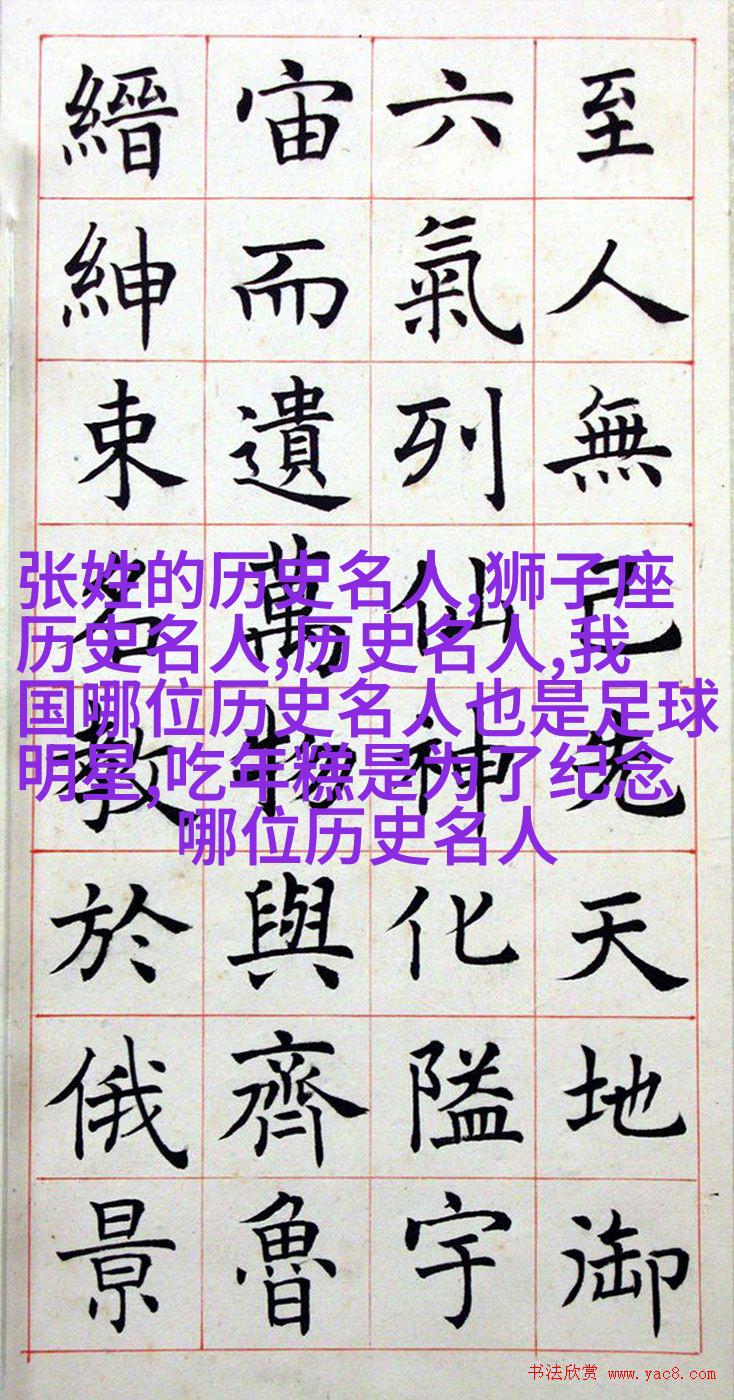 至人無己先天地御
六氣列仙神化隘宇
宙而遺萬物與齊魯
縉紳束名教於俄景
张姓的历史名人,狮子座
历史名人,历史名人,我
国哪位历史名人也是足球
明星,吃年糕是为了纪念
哪位历史名人
书法欣赏 www.yac8.com